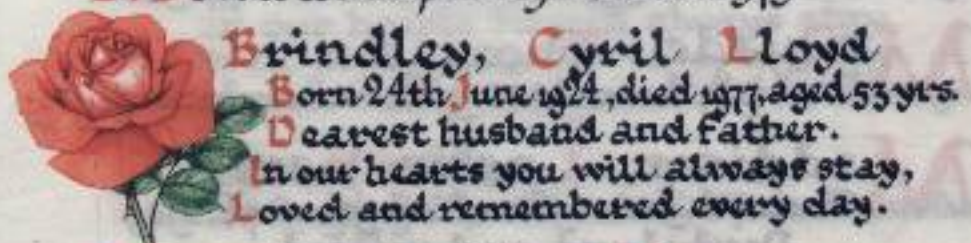 Brindley, Cyril Lloyd
Born 24th June 1924, died 1977, aged 53 yrs.
Dearest husband and Father.
In our hearts you will always stay,
Loved and remembered every day.